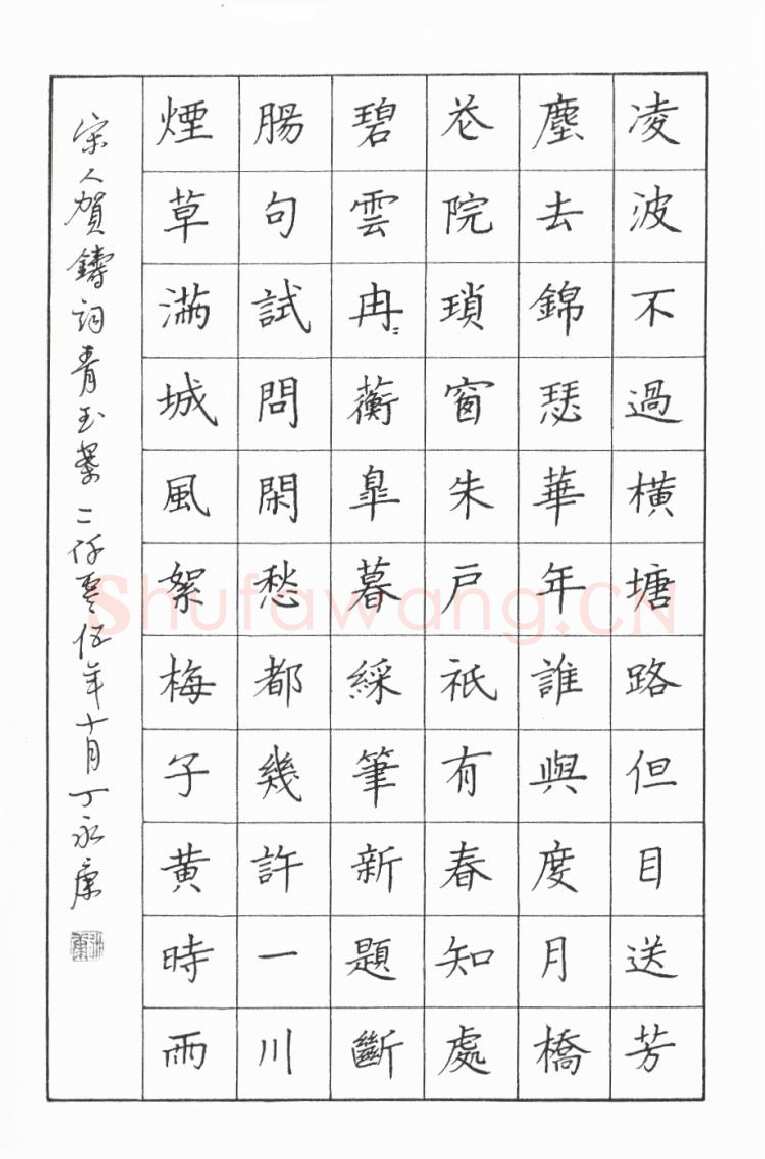 凌波不過橫塘路但目送芳
塵去錦瑟華年誰與度月橋
花院瑣窗朱戶祇有春知處
碧雲冉〻蘅皐暮綵筆新題斷
腸句試問閑愁都幾許一川
煙草滿城風絮梅子黃時雨
宋人賀鑄詞青玉案二仟零伍年十月丁永康
Shufawang.CN